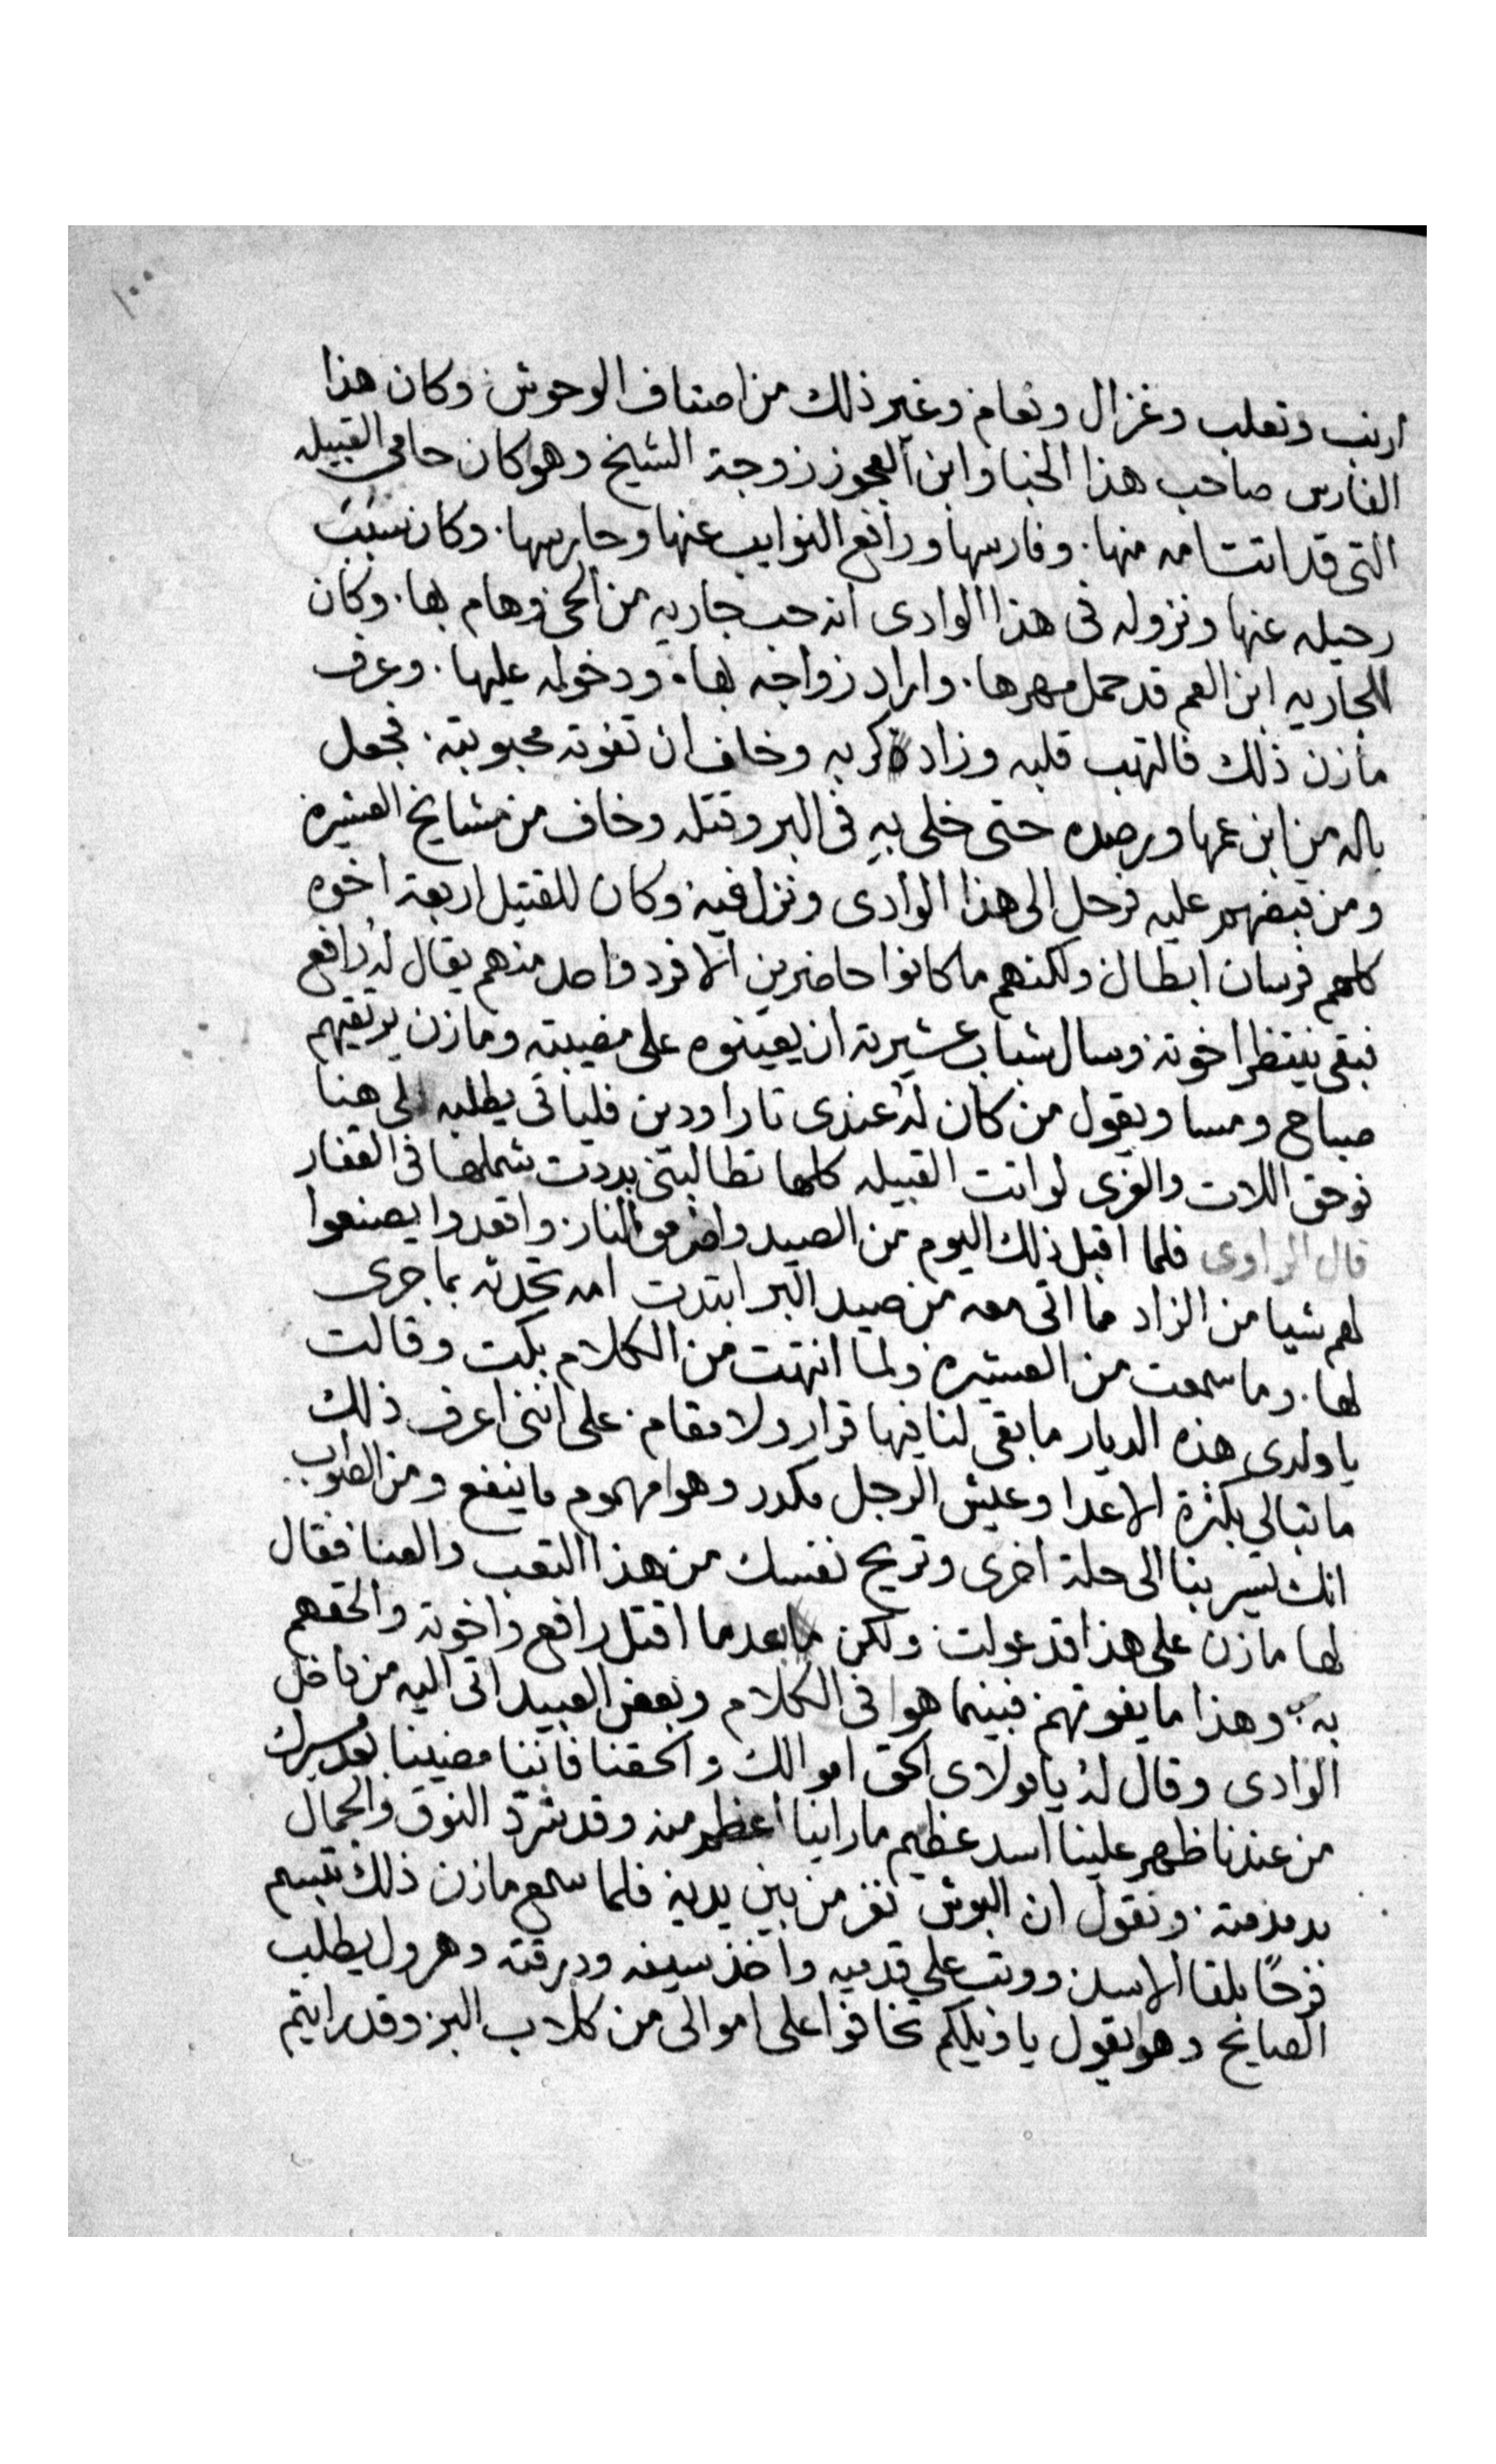 ١٠٠
ارنب وتعلب وغزال ونعام وغير ذلك من اصناف الوحوش وكان هذا
الفارس صاحب هذا الخبا وابن العجوز زوجة الشيخ وهو كان حامى القبيله
التى قد اتت امه منها. وفارسها ورافع النوايب عنها وحارسها. وكان سبب
رحيله عنها ونزوله فى هذا الوادى انه حب جاريه من الحى وهام بها. وكان
للجاريه ابن العم قد حمل مهرها. واراد زواجه بها. ودخوله عليها. وعرف
مازن ذلك فالتهب قلبه وزاد كربه وخاف ان تفوته محبوبته. فجعل
باله من ابن عمها ويرصده حتى خلى به فى البر وقتله وخاف من مشايخ العشيره
ومن قبضهم عليه فرحل الى هذا الوادى ونزل فيه وكان للقتيل اربعة اخوه
كلهم فرسان ابطال ولكنهم ما كانوا حاضرين الا فرد واحد منهم يقال له رافع
فبقى ينتظر اخوته وسال شباب عشيرته ان يعينوه على مصيبته ومازن يرتقبهم
صباح ومسا ويقول من كان له عندى تارا ودين فلياتى يطلبه الى هنا
فوحق اللات والعزى لو اتت القبيله كلها تطالبنى بددت شملها فى القفار
قال الراوى فلما اقبل ذلك اليوم من الصيد واضرمو النار واقعدوا يصنعوا
لهم شيا من الزاد مما اتى معه من صيد البر ابتدت امه تحدثه بما جرى
لها. وما سمعت من العشيره ولما انتهت من الكلام بكت وقالت
يا ولدى هذه الديار ما بقى لنا فيها قرار ولا مقام. على اننى اعرف ذلك
ما تبالى بكثرة الاعدا وعيش الرجل مكدر وهوا مهموم ما ينفع ومن الصواب
انك تسير بنا الى حلة اخرى وتريح نفسك من هذا التعب والعنا فقال
لها مازن على هذا قد عولت ولكن بعد ما اقتل رافع واخوته والحقهم
به وهذا ما يفوتهم فبينما هوا فى الكلام وبعض العبيد اتى اليه من داخل
الوادى وقال له يا مولاى الحق اموالك والحقنا فاننا مضينا بعد سيرك
من عندنا ظهر علينا اسد عظيم ما راينا اعظم منه وقد شرد النوق والجمال
بدمدمته. ونقول ان البوش تفر من بين يديه فلما سمع مازن ذلك تبسم
فرحًا بلقا الاسد ووتب على قدميه واخذ سيفه ودرقته وهرول يطلب
الصايح وهو يقول يا ويلكم تخافوا على اموالى من كلاب البر وقد رايتم